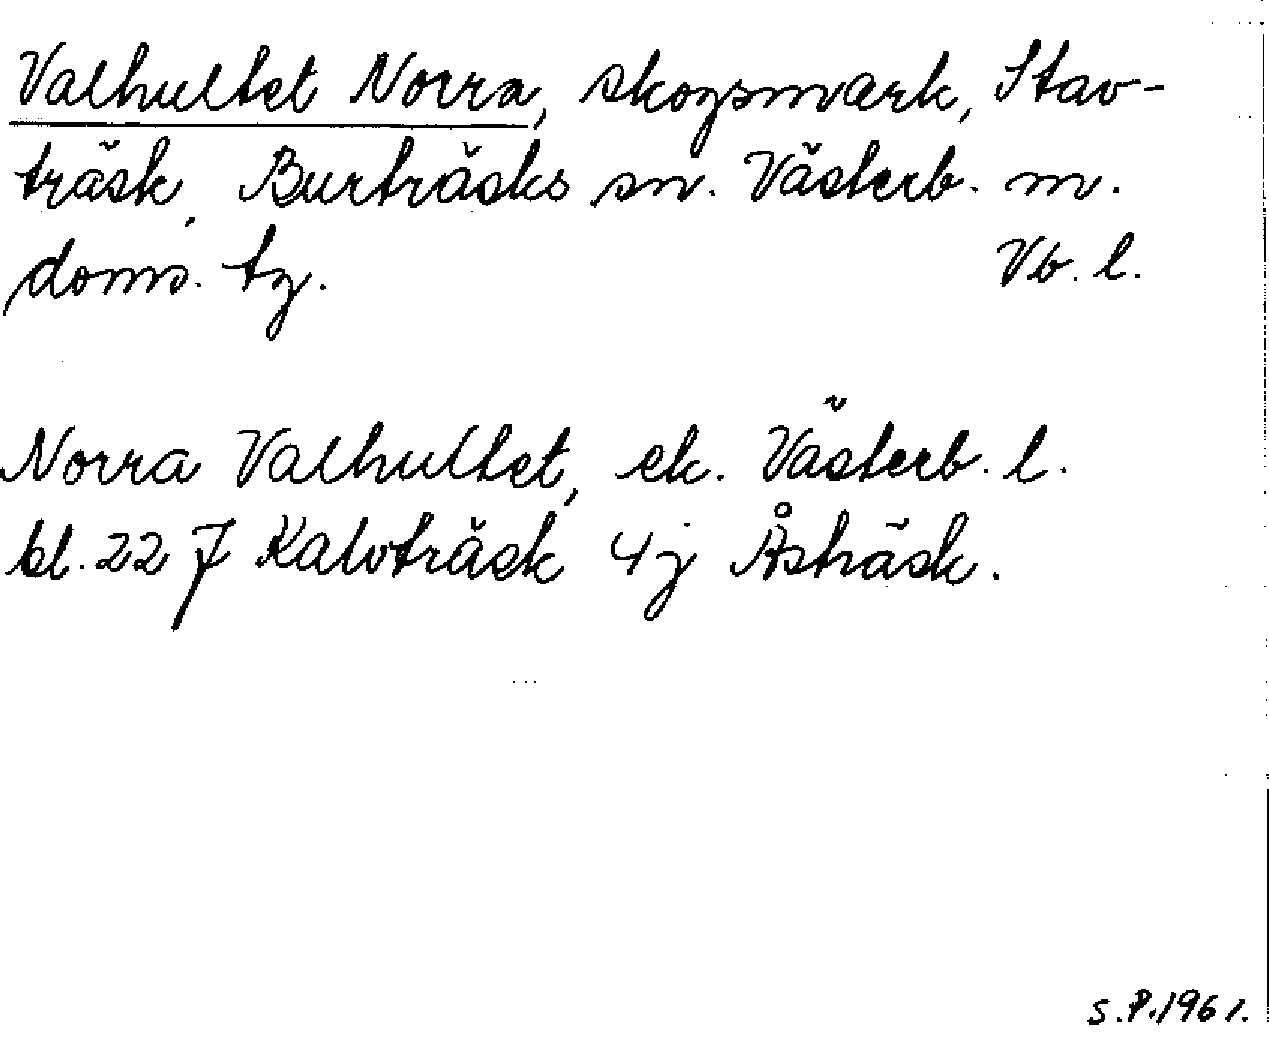 Valhultet Norra, skogsmark, Stav-
träsk, Burträsks sn. Västerb. m.
doms. tg. Vb. l.
Norra Valhultet, ek. Västerb. l.
bl. 22 J Kalvträsk 4j Åsträsk.
S.P.1961.